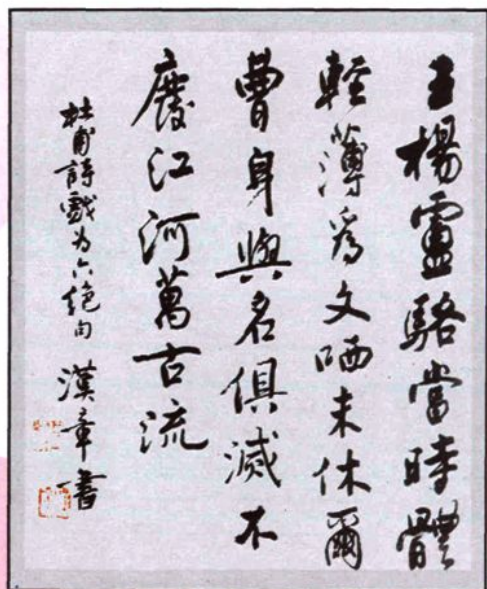 王楊盧駱當時體
輕薄為文哂未休爾
曹身與名俱滅不
廢江河萬古流
杜甫詩戲为六絕句
漢章書